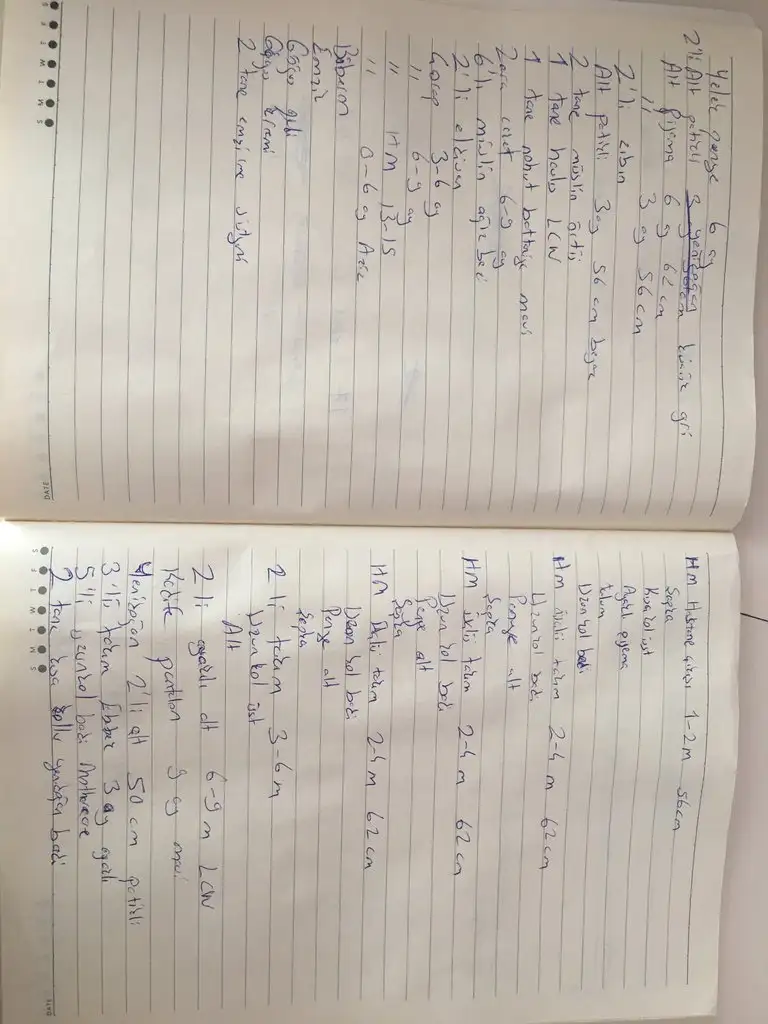 Yelek penye 6 ay
2'li Alt patikli 3 ay kömür gri
Alt pijama 6 ay 62 cm
" 3 ay 56 cm
2'li zıbın
Alt patikli 3 ay 56 cm beyaz
2 tane müslin örtü
1 tane havlu LCW
1 tane nohut battaniye mavi
Zara ceket 6-9 ay
6'lı müslin ağız bezi
2'li eldiven
Çorap 3-6 ay
" 6-9 ay
" HM 13-15
" 0-6 ay
Biberon
Emzik
Göğüs pedi
Göğüs kremi
2 tane emzirme sütyeni
HM Hastane çıkışı 1-2 M 56 cm
Şapka
Kısa kol üst
Ayaklı pijama
tulum
Uzun kol badi
HM ikili takım 2-4 M 62 cm
Uzun kol badi
Penye alt
Şapka
HM ikili takım 2-4 M 62 cm
Uzun kol badi
Penye alt
Şapka
HM ikili takım 2-4 M 62 cm
Uzun kol badi
Penye alt
Şapka
2 li takım 3-6 M
Uzun kol üst
Alt
2 li ayaklı alt 6-9 M LCW
Kadife pantolon 9 ay mavi
Yenidoğan 2'li alt 50 cm patikli
3'lü takım Ebebek 3 ay ayaklı
5'li uzunkol badi Mothercare
2 tane kısa kollu yenidoğan badi
DATE
S M T W T F S
DATE
S M T W T F S